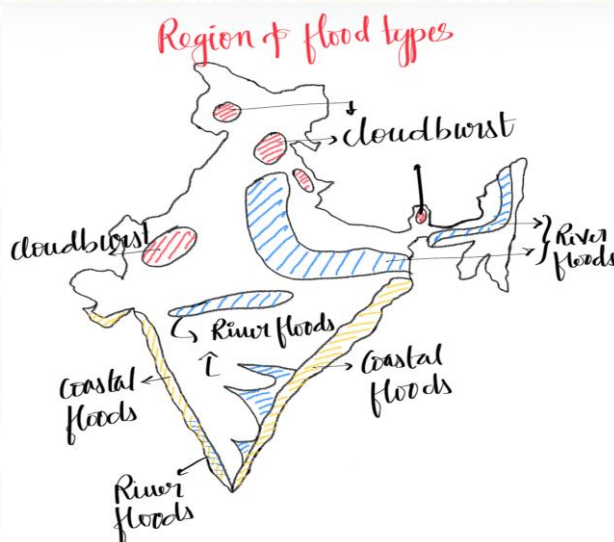 Region & flood types
cloudburst
cloudburst
River
floods
River floods
Coastal
floods
Coastal
floods
River
floods